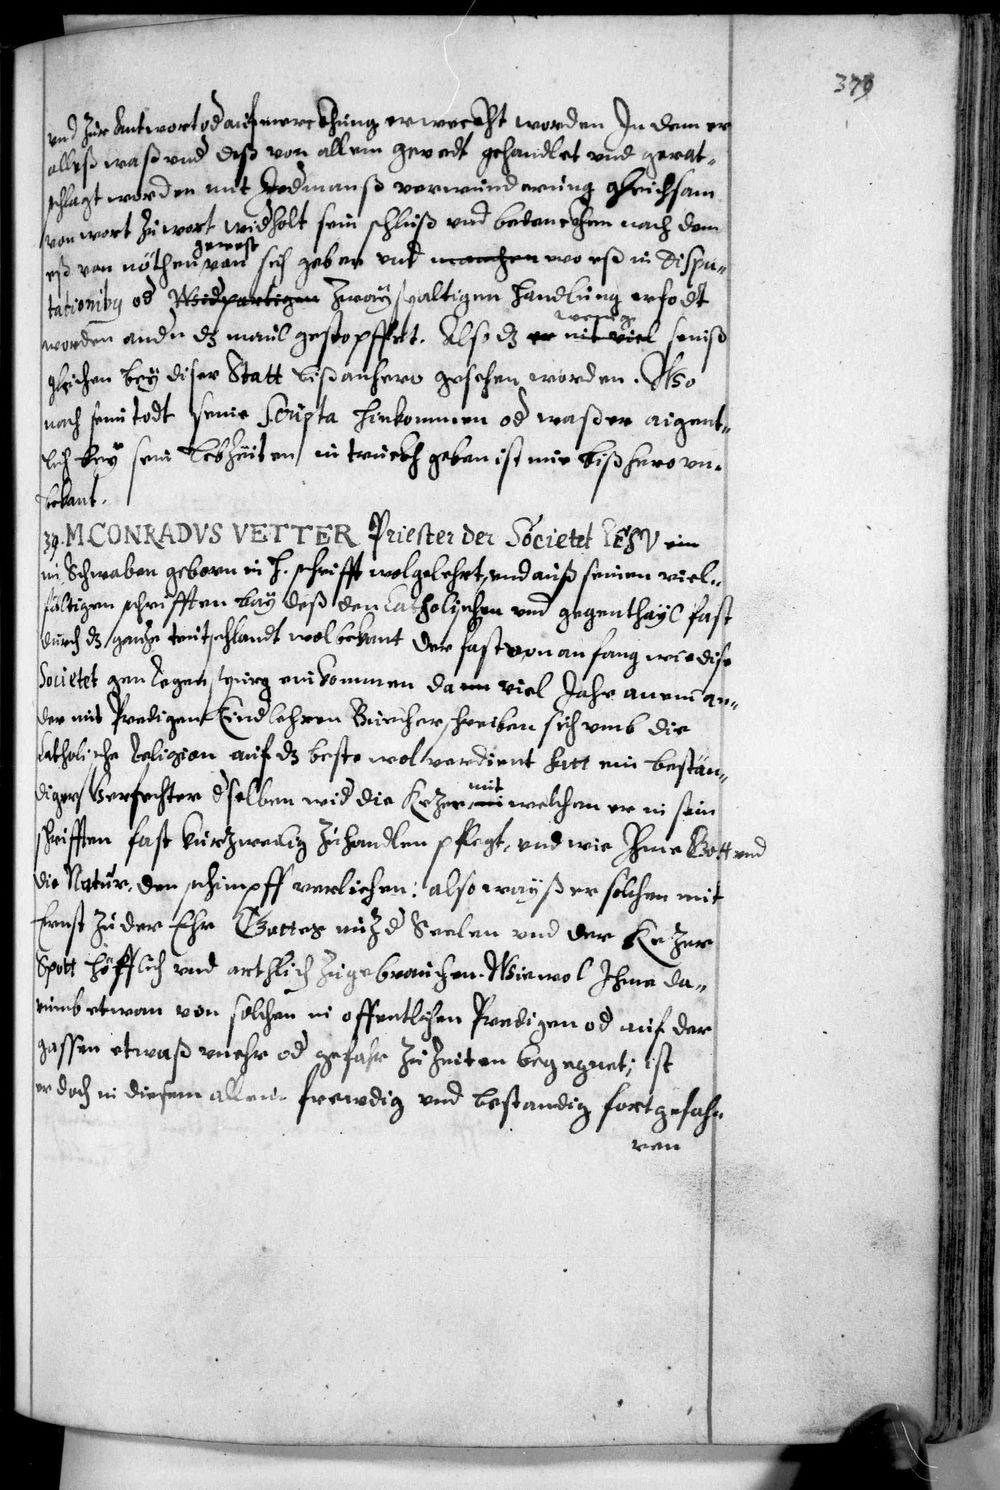 379
und zur Antwort od aufmerckhung erweckht worden In dem er
alleß waß und deß von allem geredt gehandlet und gerat-
schlagt worden mit Jedmanß verwunderung gleichsam
von wort zu wort widholt sein schluß und bedenckhen nach dem
eß von nöthen gewest von sich geben und manchen wo eß in dispu-
tationibg od Widpartigen zwayspaltigen handlung erfodt
worden andn dz maul gestopffett. Also dz er nit viel wenig seniß
gleichen bey diser Statt bißanhero gesehen worden. Wo
nach seim todt seine Scripta hinkommen od waß er aigent-
lich bey sein lebzeiten in truckh geben ist mir bißhero un-
bekant.
39. M CONRADVS VETTER Priester der Societet IESV ein
in Schwaben geborn in H. schrifft wolgelehrt, und auß seinen viel-
fältigen schrifften bay deß den Catholischen und gegenthayl fast
durch dz gantze teutschlandt wol bekant der fast von anfang wie dise
Societet gen Regenspurg einkommen da viel Jahr aneinan-
der mit Predigen Kindlehren Buecher schreiben sich umb die
Catholische Religion auf dz beste wol verdient hatt ein bestän-
diger Verfechter dselben wid die Kezer, mit welchen er in sein
schrifften fast kurzweilig zuhandlen pflegt, und wie Ihme Gott und
die Natur den schimpff verliehen: also wayß er solchen mit
Ernst zu der Ehr Gottes nuz d Seelen und der Kezer
Spott höfflich und arthlich zugebrauchen. Wiewol Ihme da-
rumb etwan von solchen in offentlichen Predigen od auf der
gassen etwaß unehr od gefahr zu Zeiten begegnet; ist
er doch in diesem allem frewdig und bestandig fortgefah-
ren